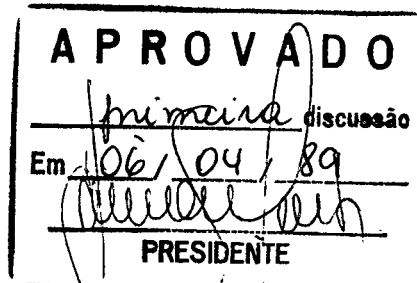 APROVADO
primeira discussão
Em 06/ 04/ 89
PRESIDENTE